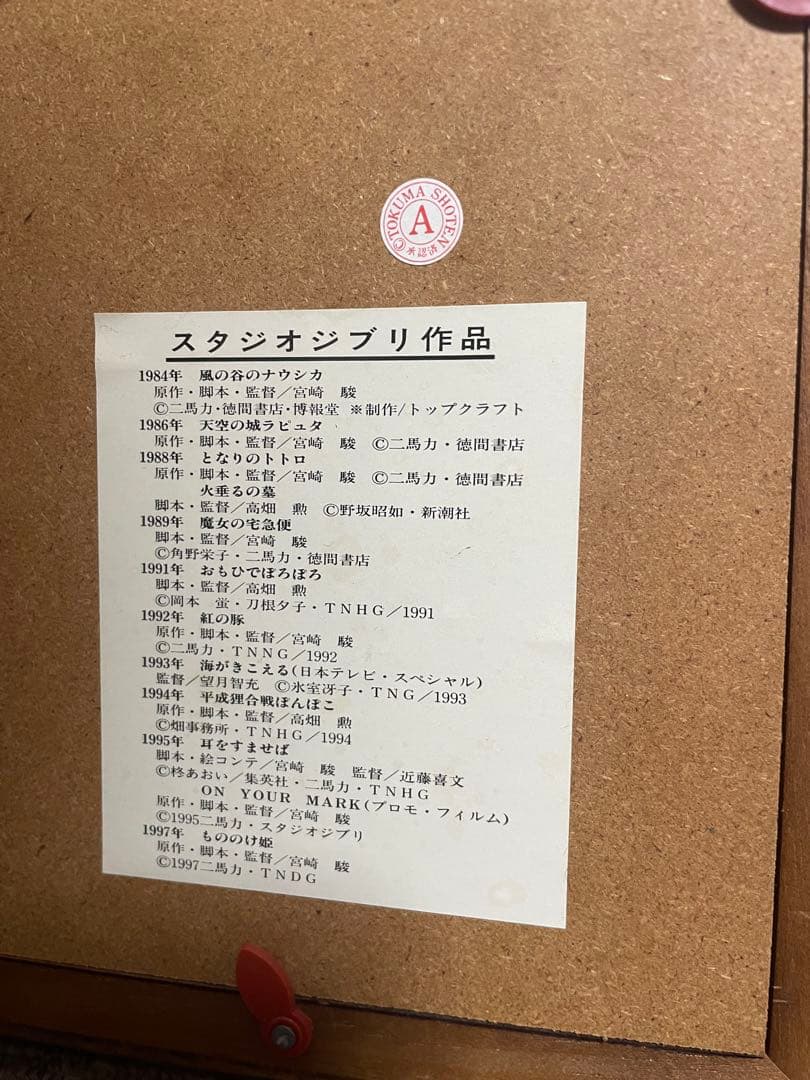 ©TOKUMA SHOTEN
A
承認済
スタジオジブリ作品
1984年 風の谷のナウシカ
原作・脚本・監督/宮崎 駿
©二馬力・徳間書店・博報堂 ※制作/トップクラフト
1986年 天空の城ラピュタ
原作・脚本・監督/宮崎 駿 ©二馬力・徳間書店
1988年 となりのトトロ
原作・脚本・監督/宮崎 駿 ©二馬力・徳間書店
火垂るの墓
脚本・監督/高畑 勲 ©野坂昭如・新潮社
1989年 魔女の宅急便
脚本・監督/宮崎 駿
©角野栄子・二馬力・徳間書店
1991年 おもひでぽろぽろ
脚本・監督/高畑 勲
©岡本 蛍・刀根夕子・TNHG/1991
1992年 紅の豚
原作・脚本・監督/宮崎 駿
©二馬力・TNNG/1992
1993年 海がきこえる(日本テレビ・スペシャル)
監督/望月智充 ©氷室冴子・TNG/1993
1994年 平成狸合戦ぽんぽこ
原作・脚本・監督/高畑 勲
©畑事務所・TNHG/1994
1995年 耳をすませば
脚本・絵コンテ/宮崎 駿 監督/近藤喜文
©柊あおい/集英社・二馬力・TNHG
ON YOUR MARK(プロモ・フィルム)
原作・脚本・監督/宮崎 駿
©1995二馬力・スタジオジブリ
1997年 もののけ姫
原作・脚本・監督/宮崎 駿
©1997二馬力・TNDG